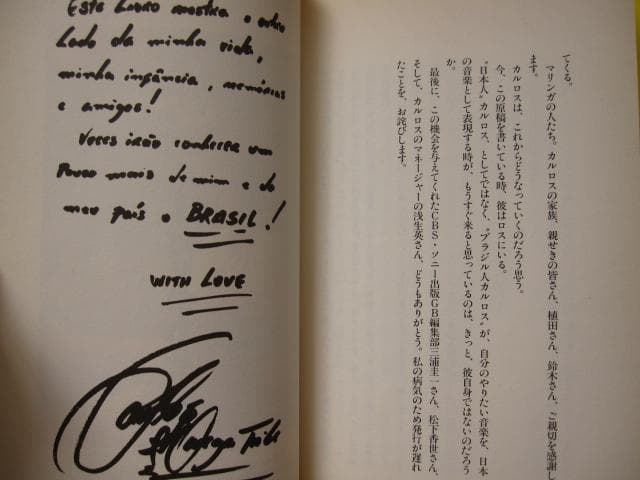 Este Livro mostra o outro
Lado da minha vida,
minha infância, memórias
e amigos!
Voces irão conhecer um
Pouco mais de mim e do
meu país o BRASIL!
WITH LOVE
てくる。
マリンガの人たち。カルロスの家族、親せきの皆さん、植田さん、鈴木さん、ご親切を感謝し
ます。
カルロスは、これからどうなっていくのだろう思う。
今、この原稿を書いている時、彼はロスにいる。
“日本人”カルロス、としてではなく、“ブラジル人カルロス”が、自分のやりたい音楽を、日本
の音楽として表現する時が、もうすぐ来ると思っているのは、きっと、彼自身ではないのだろう
か。
最後に、この機会を与えてくれたCBS・ソニー出版GB編集部三浦圭一さん、松下香世さん、
そして、カルロスのマネージャーの浅生英さん、どうもありがとう。私の病気のため発行が遅れ
たことを、お詫びします。